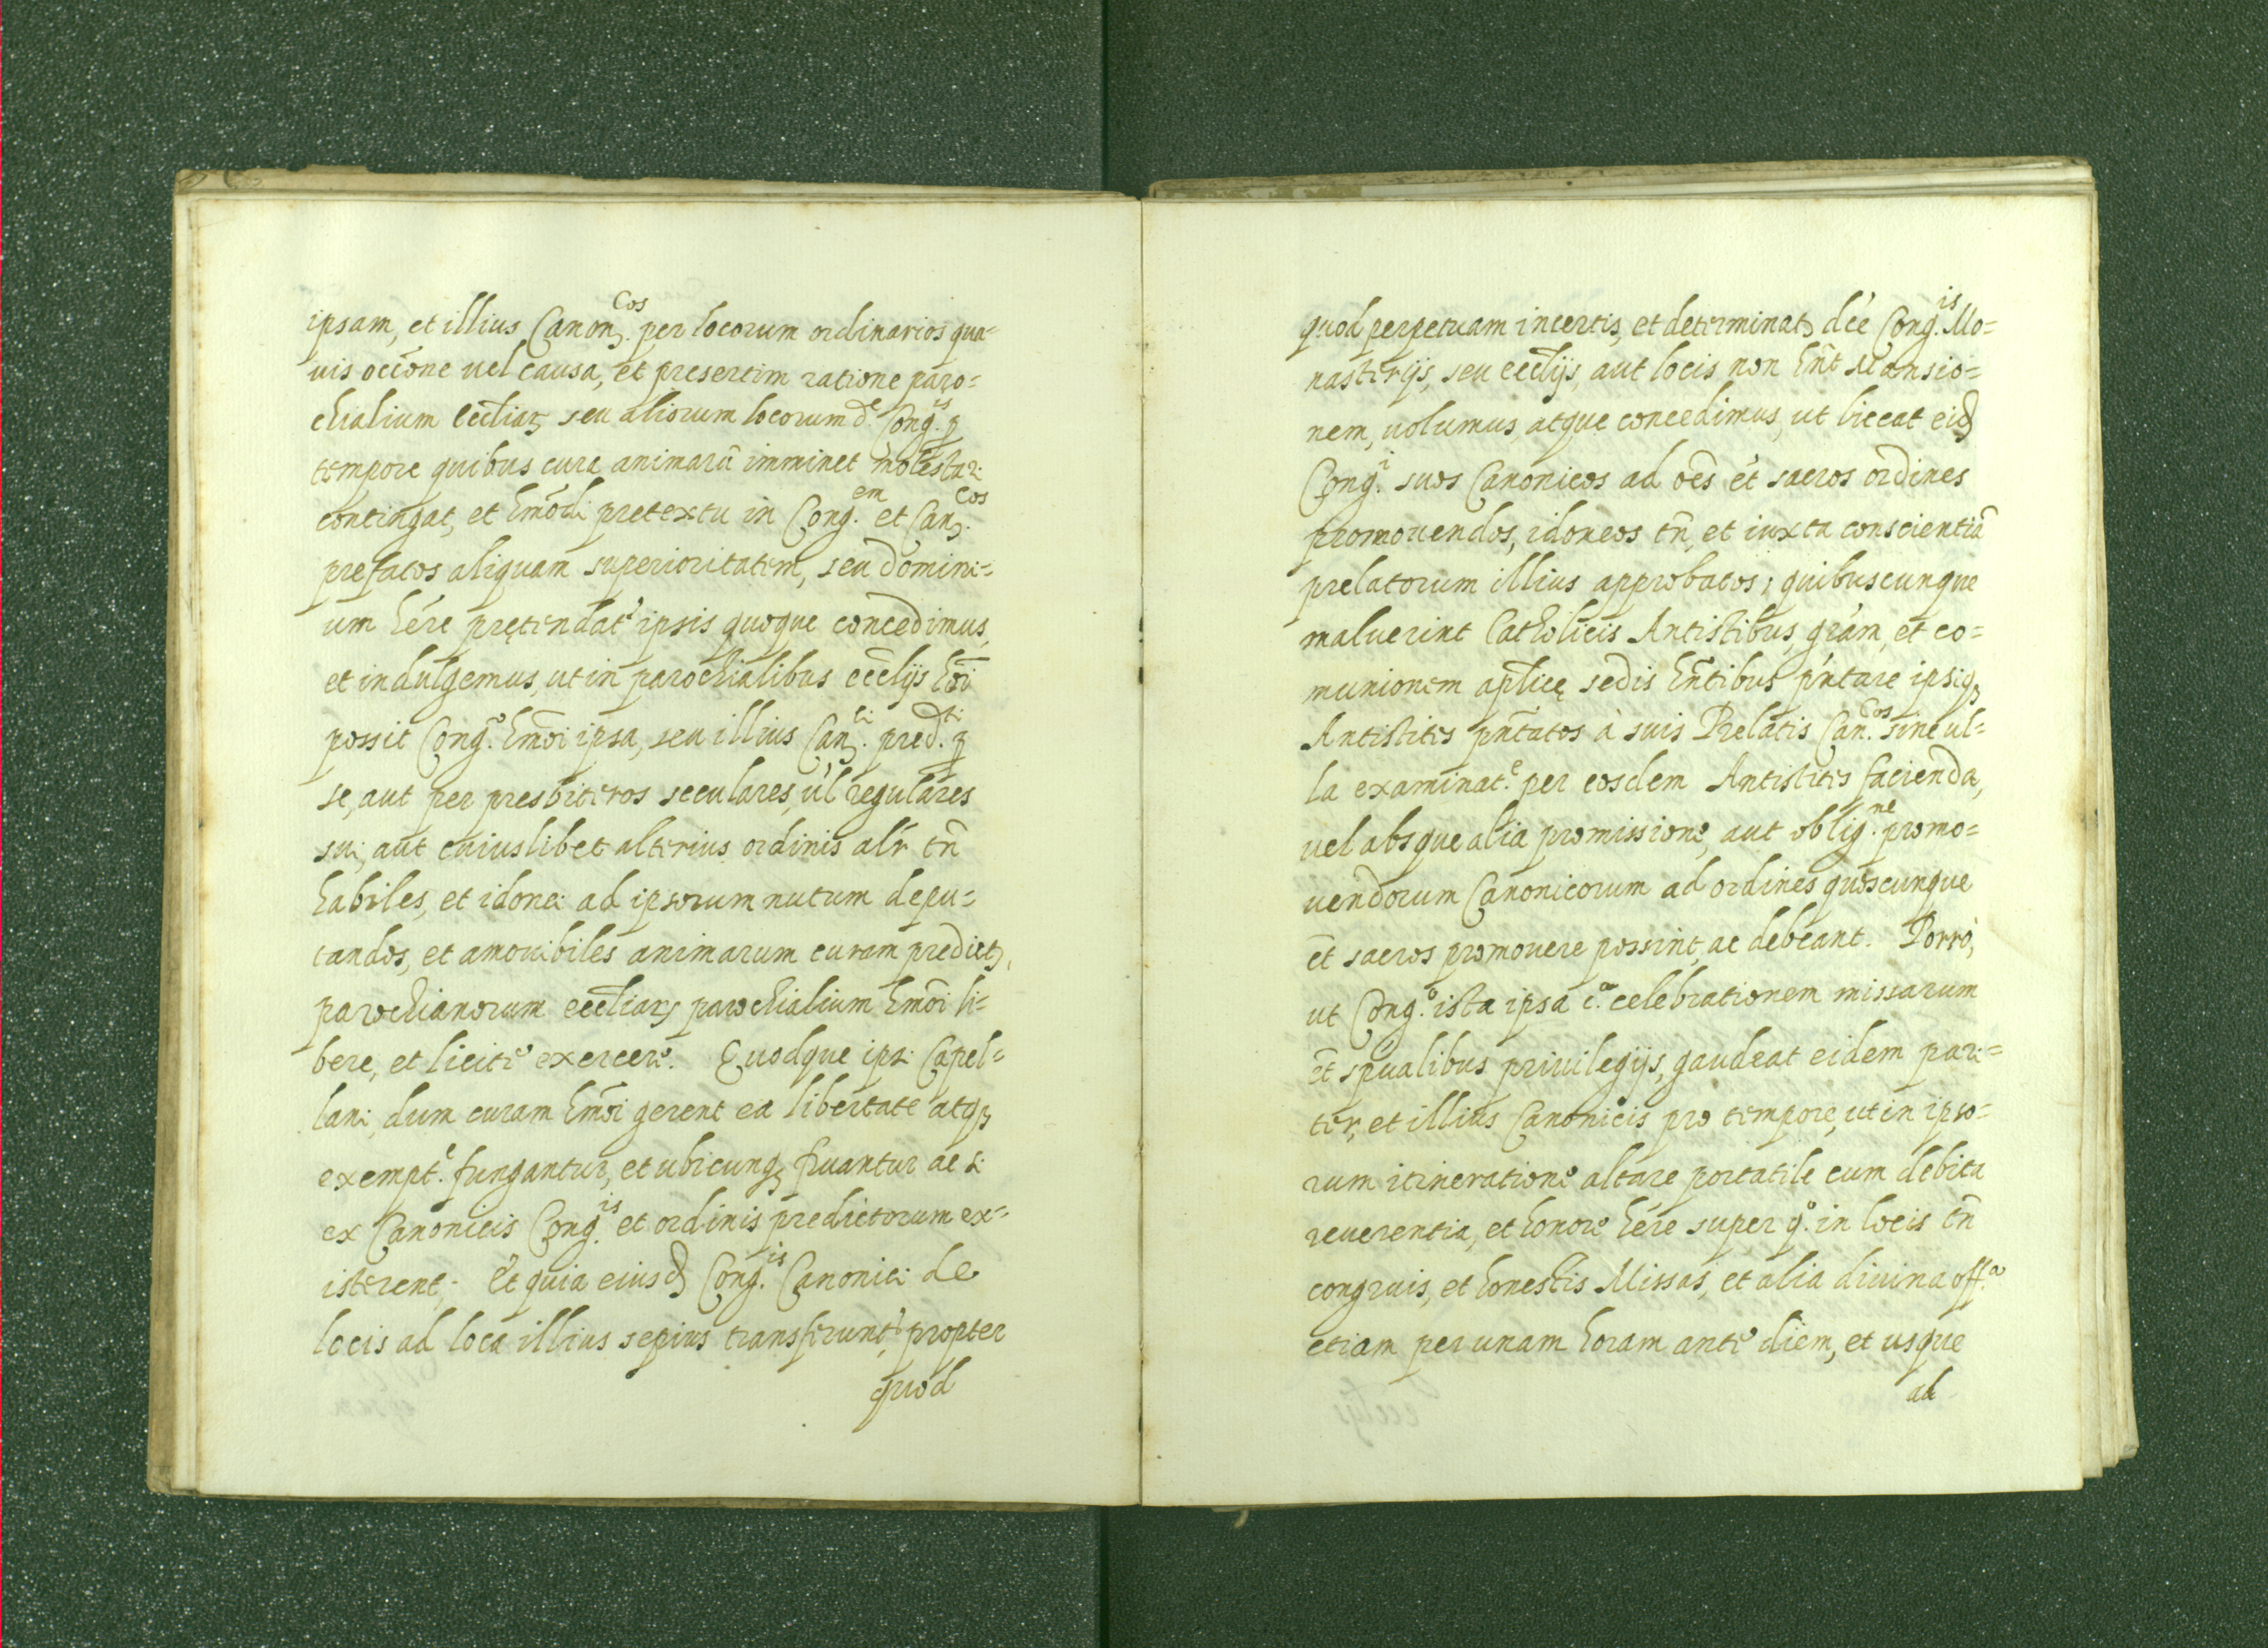 ipsam, et illius Canon.cos per locorum ordinarios qua=
uis occõne uel causa, et presertim ratione paro=
chialium eccliaꝝ seu aliorum locorum d.e Cong.is ꝓ
tempore quibus cura animarũ imminet molestari
contingat, et hmõdi pretextu in Cong.em et Can.cos
prefatos aliquam superioritatem, seu domini=
um hére prętendatr ipsis quoque concedimus,
et indulgemus, ut in parochialibus ecclijs hmõi
possit Cong.o hmõi ipsa, seu illius Can.ci pred.ti ꝑ
se, aut per presbiteros seculares, ul regulares
sui, aut cuiuslibet alterius ordinis alr tñ
habiles, et idonei ad ipsorum nutum depu=
tandos, et amouibiles animarum curam predictꝝ,
parochianorum eccliarꝝ parochialium hmõi li=
bere, et licite exercere. Quodque ipsi Capel=
lani, dum curam hmõi gerent ea libertate atqꝫ
exempt.e fungantur, et ubicunqꝫ fruantur ac si
ex Canonicis Cong.is et ordinis predictorum ex=
isterent. Et quia eiusd Cong.is Canonici de
locis ad loca illius sepius transferuntr, propter
quod
quod perpetuam in certis, et determinatꝫ dće Cong.is Mo=
nasterijs, seu ecclijs, aut locis non hñt Mansio=
nem, uolumus, atque concedimus, ut liceat eid
Cong.i suos Canonicos ad oẽs et sacros ordines
promouendos, idoneos tñ, et iuxta conscientiã
prelatorum illius approbatos, quibuscunque
maluerint Catholicis Antistibus, grám, et co=
munionem aplicę sedis hñtibus p'ntare ipsiqꝫ
Antistites pñtatos à suis Prelatis Can.cos sine ul=
la examinat.e per eosdem Antistites facienda,
uel absque alia promissione, aut oblig.ne promo=
uendorum Canonicorum ad ordines quoscunque
et sacros promouere possint, ac debeant. Porrò,
ut Cong.o ista ipsa c.a celebrationem missarum
et spualibus priuilegijs, gaudeat eidem pari=
ter, et illius Canonicis pro tempore, ut in ipso=
rum itineratione altare portatile cum debita
reuerentia, et honore hére super q.o in locis tñ
congruis, et honestis Missas, et alia diuina off.a
etiam per unam horam ante diem, et usque
ad